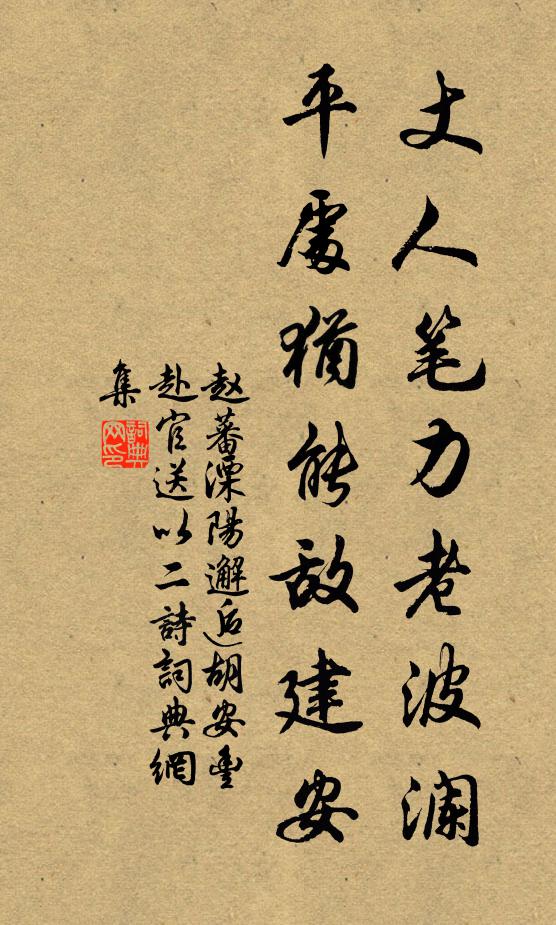 丈人笔力老波澜
平處猶能敌建安
赵蕃溧陽邂逅胡安豊
赴官送以二詩詞典網
集
詞典网印